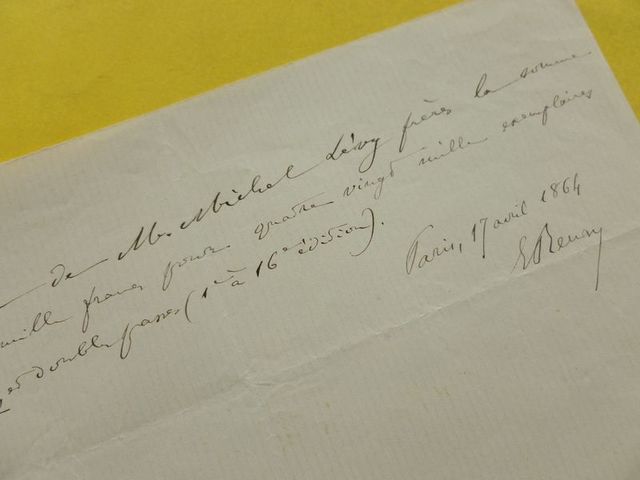 de Mr. Michel Lévy frères la somme
mille francs pour quatre vingt mille exemplaires
et doubles passes (1re à 16e édition).
Paris, 17 avril 1864
E Renan